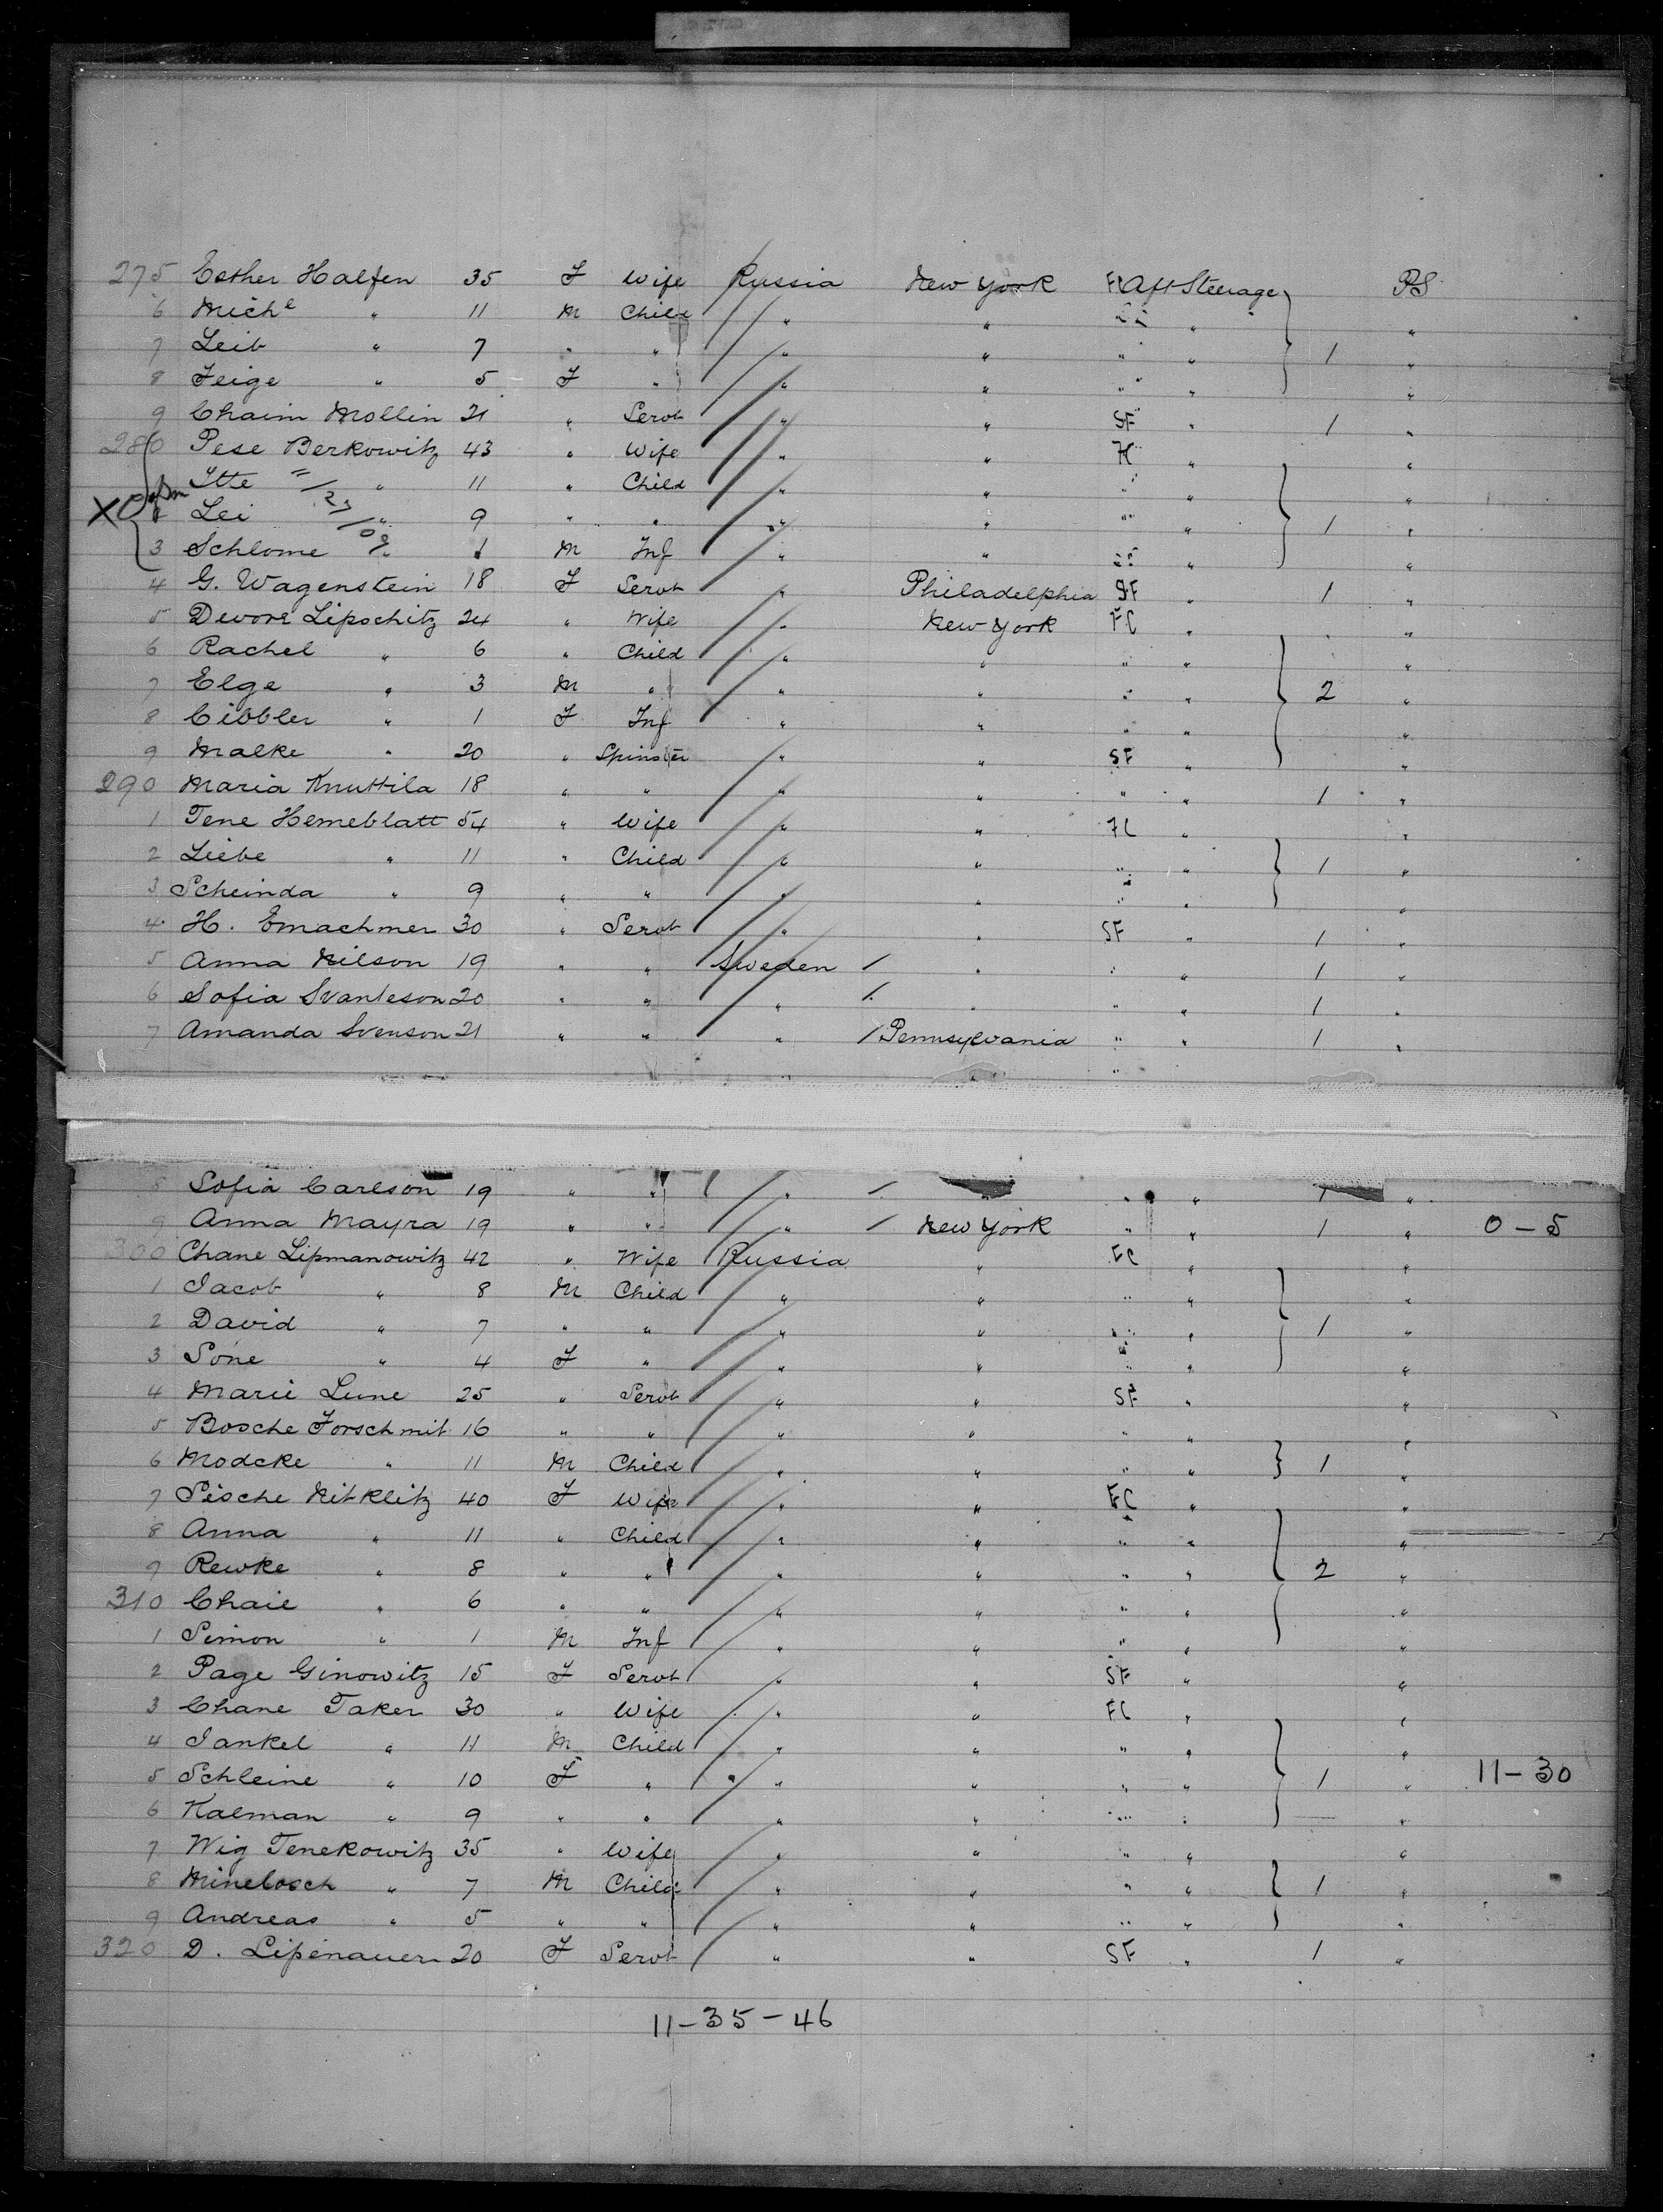 275 Esther Halfen 35 F Wife Russia New York FC Aft Steerage PS
6 Michl " 11 M Child " " " " "
7 Leib " 7 " " " " " " 1 "
8 Feige " 5 F " " " " " "
9 Chaim Mollin 21 " Servt " " SF " 1 "
280 Pese Berkowitz 43 " Wife " " FC " "
Itte " 11 " Child " " " " "
Lei " 9 " " " " " " 1 "
3 Schlome " 1 M Inf " " " " "
4 G. Wagenstein 18 F Servt " Philadelphia SF " 1 "
5 Devore Lipschitz 24 " Wife " New York FC " "
6 Rachel " 6 " Child " " " " "
7 Elge " 3 M " " " " " 2 "
8 Cibbler " 1 F Inf " " " " "
9 Malke " 20 " Spinster " " SF " "
290 Maria Knuttila 18 " " " " " " 1 "
1 Tene Hemeblatt 54 " Wife " " FC " "
2 Liebe " 11 " Child " " " " 1 "
3 Scheinda " 9 " " " " " " "
4 H. Emachmer 30 " Servt " " SF " 1 "
5 Anna Nilson 19 " " Sweden / " " " 1 "
6 Sofia Svanteson 20 " " " / " " " 1 "
7 Amanda Svenson 21 " " " / Pennsylvania " " 1 "
8 Sofia Carlson 19 " " " / " " " 1 "
9 Anna Mayra 19 " " " / New York " " 1 " 0-5
300 Chane Lipmanowitz 42 " Wife Russia " FC " "
1 Jacob " 8 M Child " " " " "
2 David " 7 " " " " " " 1 "
3 Sone " 4 F " " " " " "
4 Marie Lune 25 " Servt " " SF " "
5 Bosche Forschmit 16 " " " " " " "
6 Modcke " 11 M Child " " " " 1 "
7 Pische Nitklitz 40 F Wife " " FC " "
8 Anna " 11 " Child " " " " "
9 Rewke " 8 " " " " " " 2 "
310 Chaie " 6 " " " " " " "
1 Simon " 1 M Inf " " " " "
2 Page Ginowitz 15 F Servt " " SF " "
3 Chane Taker 30 " Wife " " FC " "
4 Jankel " 11 M Child " " " " "
5 Schleine " 10 F " " " " " 1 " 11-30
6 Kalman " 9 " " " " " " "
7 Wig Tenekowitz 35 " Wife " " " " "
8 Minelosch " 7 M Child " " " " 1 "
9 Andreas " 5 " " " " " " "
320 D. Lipenauer 20 F Servt " " SF " 1 "
11-35-46